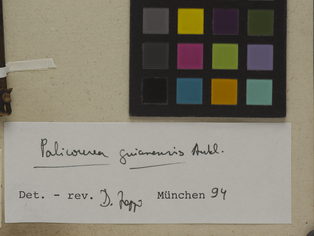 Palicourea guianensis Aubl.
Det. - rev. D. Zappi München 94